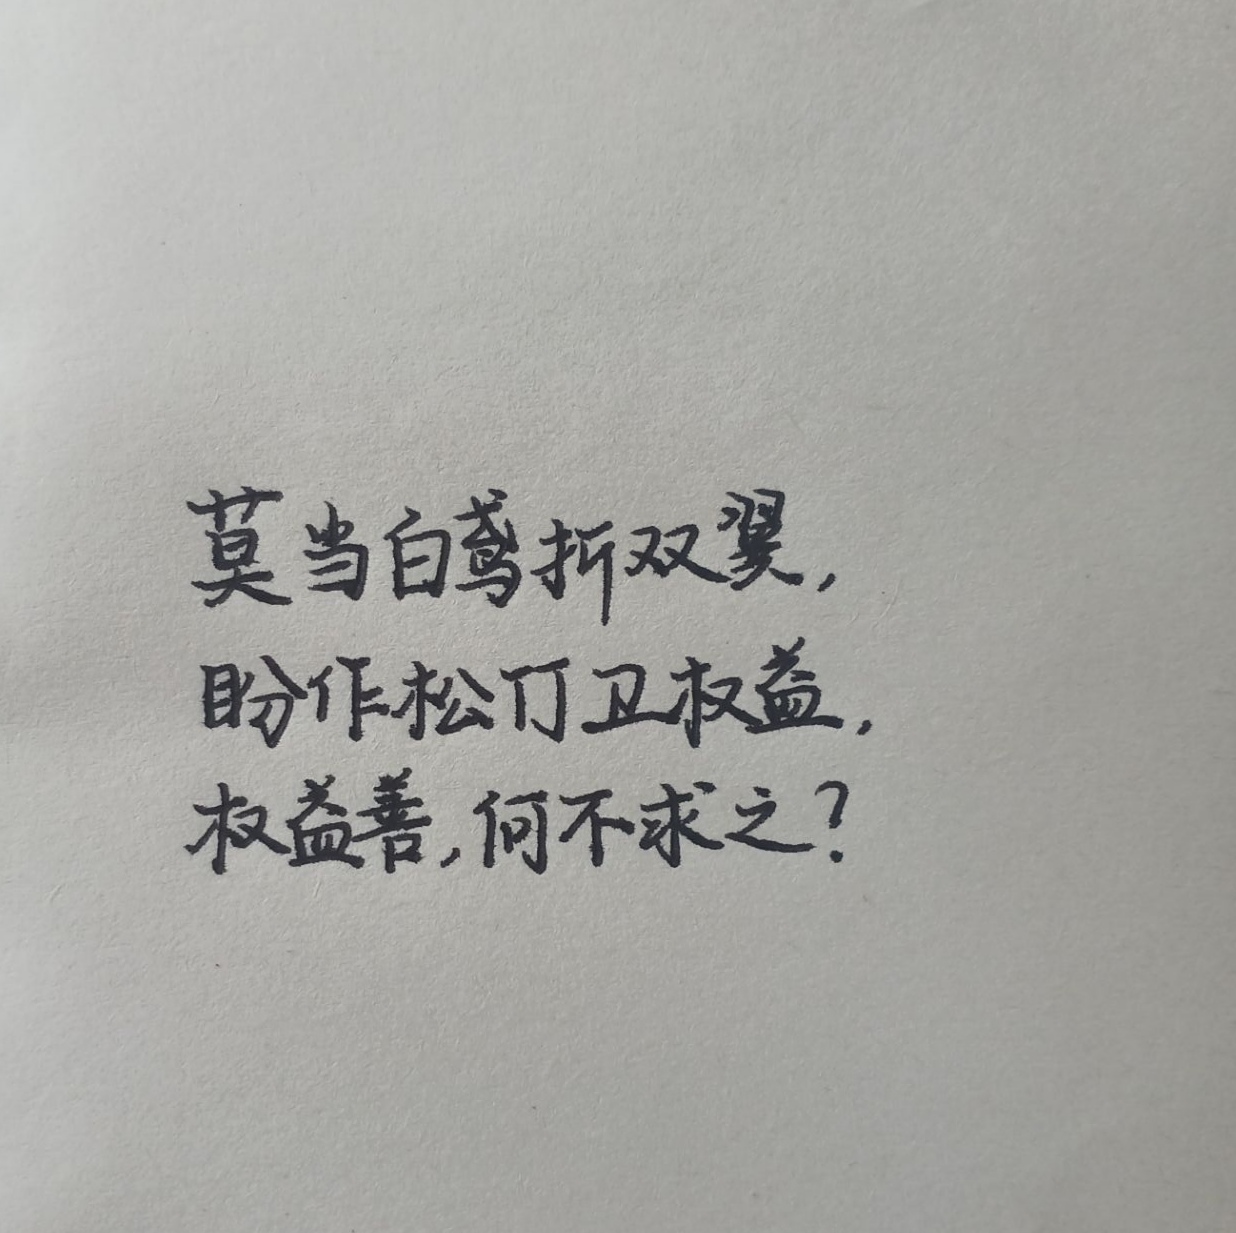 莫当白鸢折双翼,
盼作松丁卫权益.
权益善,何不求之?